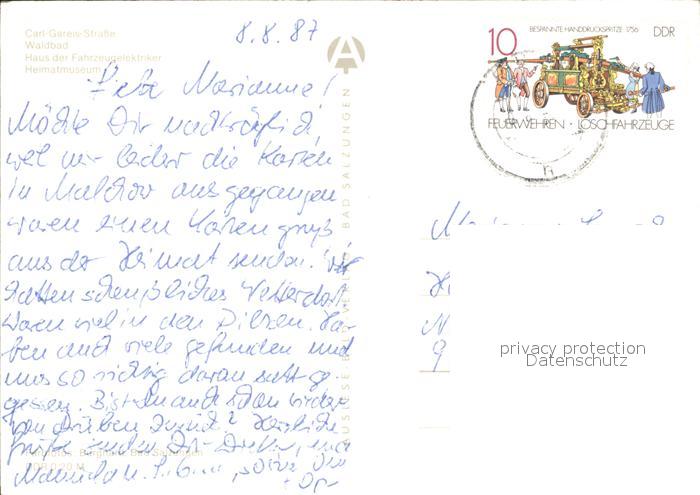 8.8.87
Carl-Gareis-Straße
Waldbad
Haus der Fahrzeugelektriker
Heimatmuseum
Liebe Marianne!
Möchte Dir nachträglich,
weil mir leider die Karten
in Malchow ausgegangen
waren einen Kartengruß
aus der Heimat senden. Wir
hatten scheußliches Wetter dort.
Waren viel in den Pilzen. Ha-
ben auch viele gefunden und
uns so richtig daran satt ge-
gessen. Bist Du auch schon wieder
von drüben zurück? Herzliche
Grüße senden Dir
BAD SALZUNGEN
10
BESPANNTE HANDDRUCKSPRITZE · 1756
DDR
FEUERWEHREN · LÖSCHFAHRZEUGE
privacy protection
Datenschutz